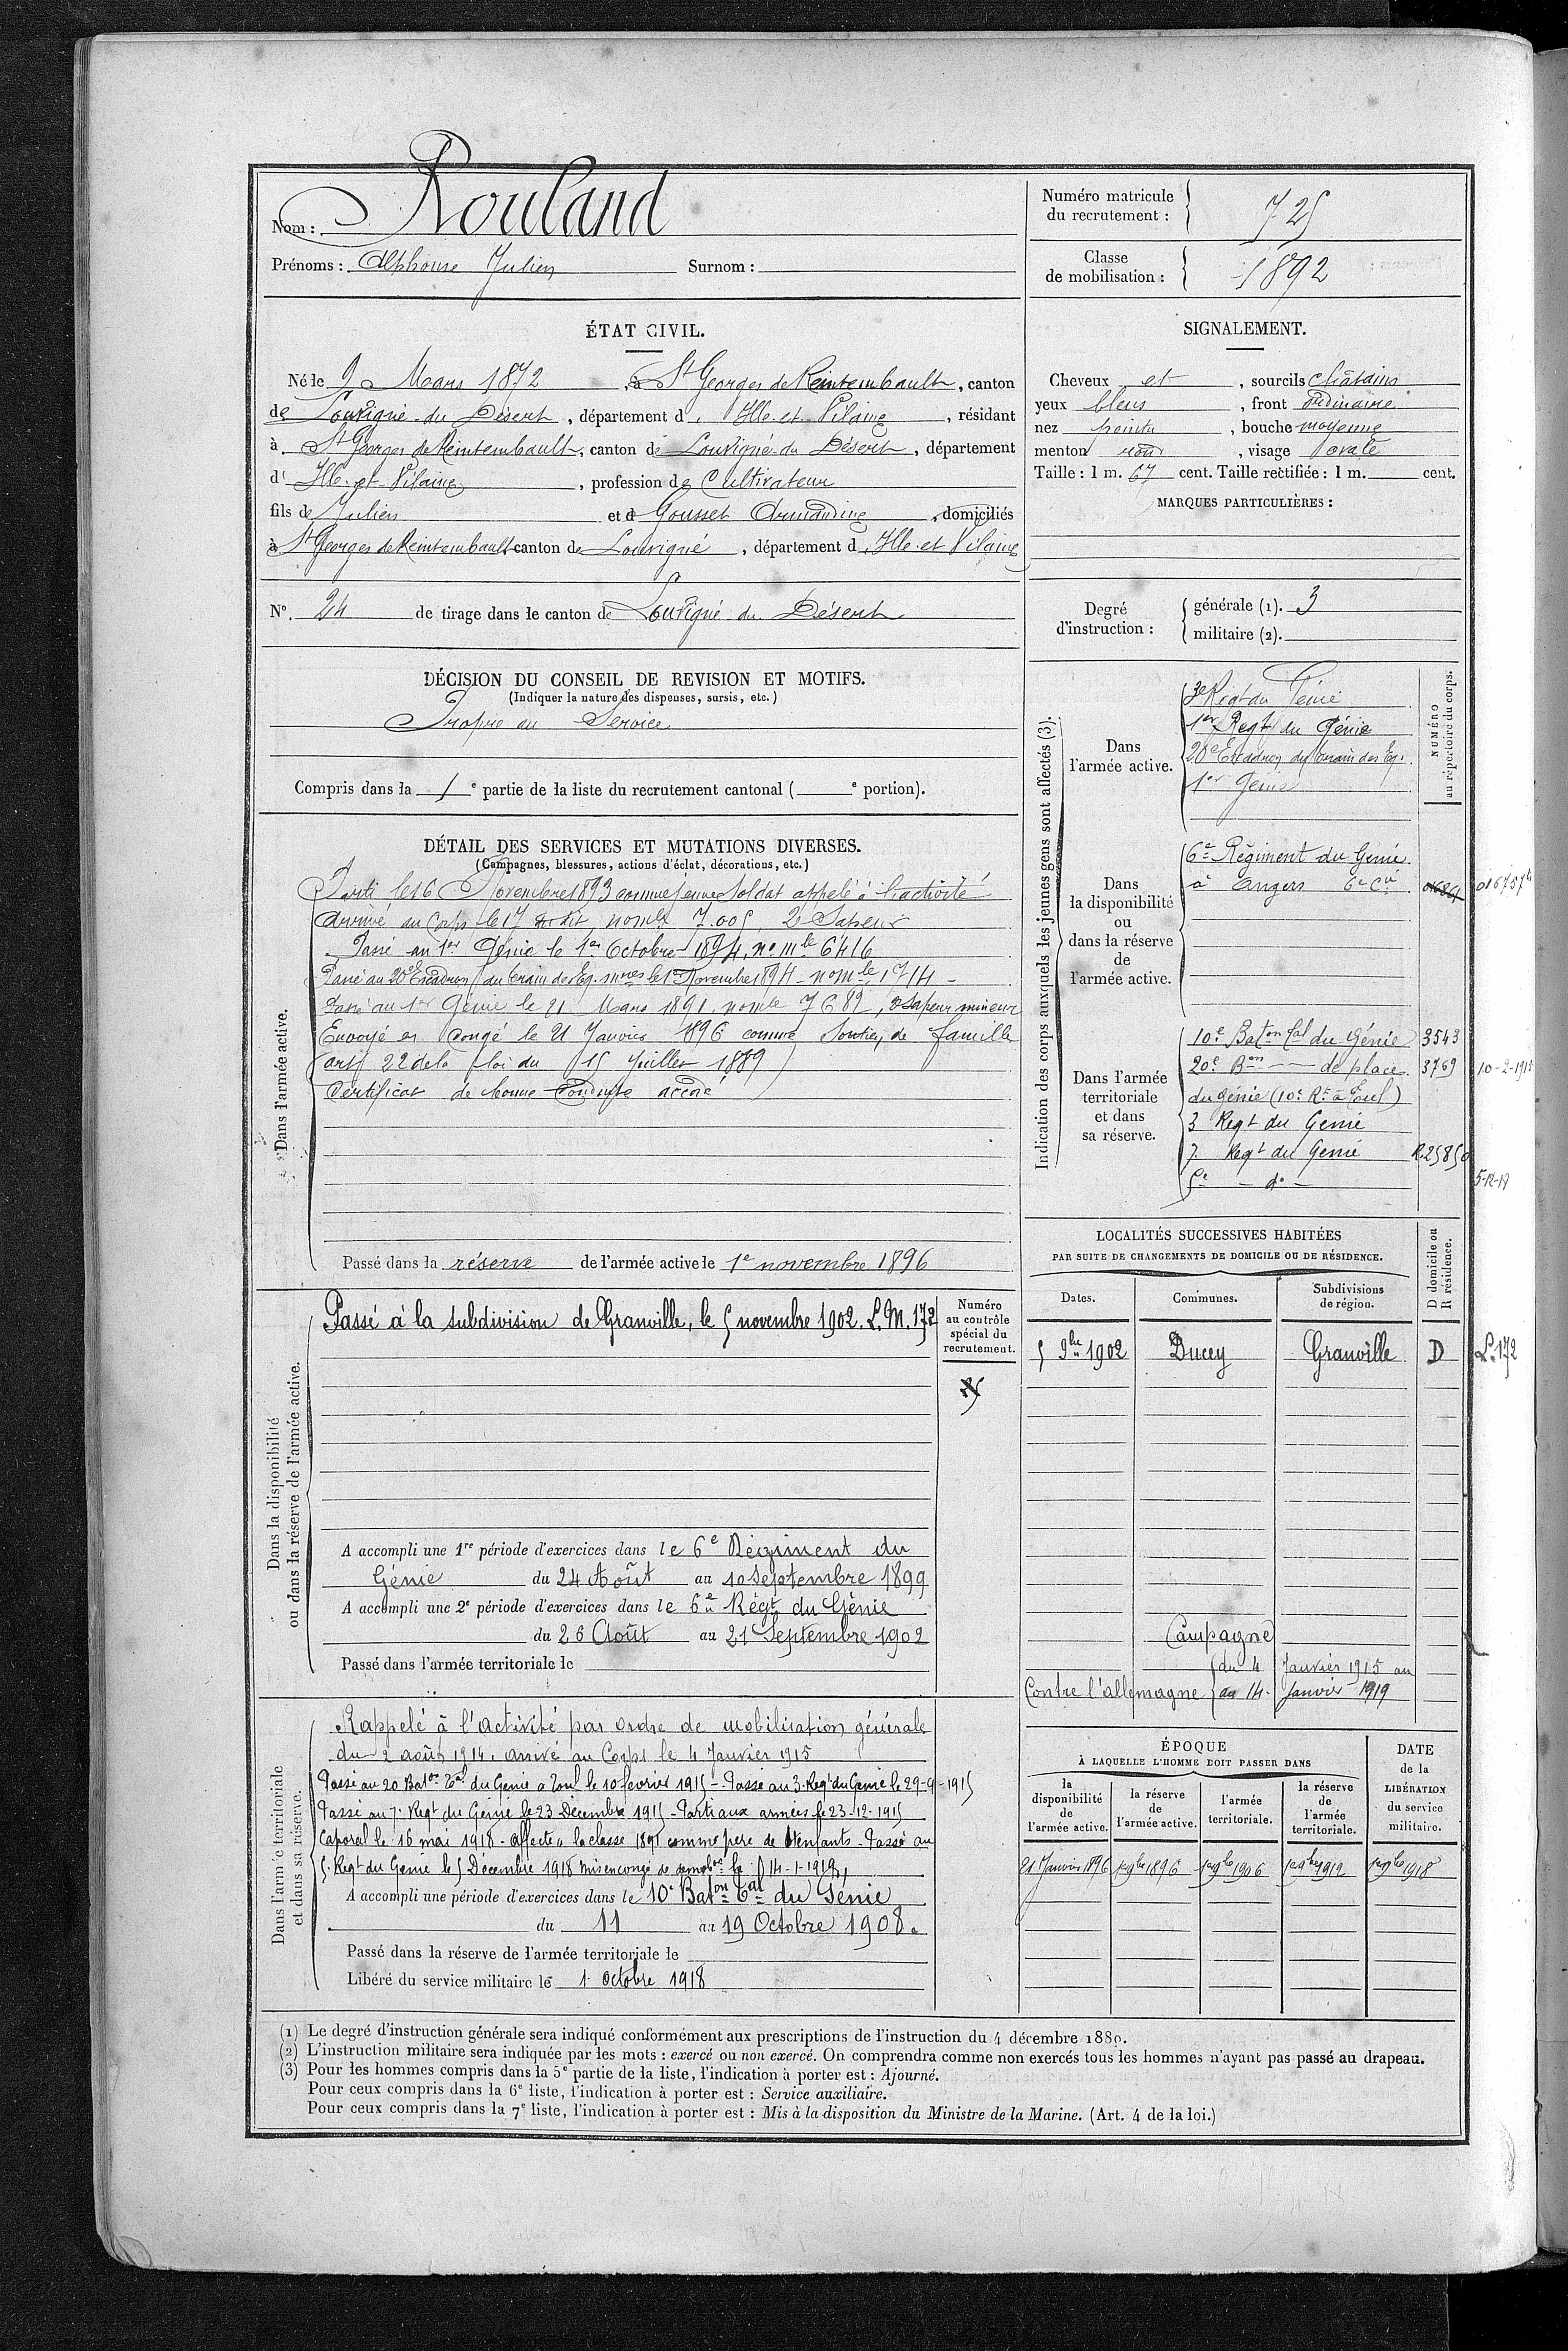 Nom : Rouland
Prénoms : Alphonse Julien Surnom :
Numéro matricule du recrutement : 725
Classe de mobilisation : 1892
ÉTAT CIVIL.
Né le 9 Mars 1872, à St Georges de Reintembault, canton
de Louvigné du Désert, département d'Ille et Vilaine, résidant
à St Georges de Reintembault, canton de Louvigné du Désert, département
d'Ille et Vilaine, profession de Cultivateur
fils de Julien et de Gousset Armandine, domiciliés
à St Georges de Reintembault canton de Louvigné, département d'Ille et Vilaine
N° 24 de tirage dans le canton de Louvigné du Désert
SIGNALEMENT.
Cheveux et, sourcils châtains
yeux bleus, front ordinaire
nez pointu, bouche moyenne
menton rond, visage ovale
Taille : 1 m. 67 cent. Taille rectifiée : 1 m. cent.
MARQUES PARTICULIÈRES :
Degré d'instruction : générale (1). 3
militaire (2).
DÉCISION DU CONSEIL DE REVISION ET MOTIFS.
(Indiquer la nature des dispenses, sursis, etc.)
Propre au Service
Compris dans la 1e partie de la liste du recrutement cantonal ( e portion).
DÉTAIL DES SERVICES ET MUTATIONS DIVERSES.
(Campagnes, blessures, actions d'éclat, décorations, etc.)
Dans l'armée active.
Parti le 16 Novembre 1893 comme jeune soldat appelé à l'activité
Arrivé au Corps le 17 dudit, no mle 7.005 2e Sapeur
Passé au 1er Génie le 1er Octobre 1894, no mle 6416
Passé au 20e Escadron du train des Eq. mres le 1er Novembre 1894 - no mle 1714 -
Passé au 1er Génie le 21 Mars 1895, no mle 7682, 2e Sapeur mineur
Envoyé en congé le 21 Janvier 1896 comme soutien de famille
(art 22 de la loi du 15 Juillet 1889)
Certificat de bonne conduite accordé
Passé dans la réserve de l'armée active le 1e novembre 1896
Indication des corps auxquels les jeunes gens sont affectés (3).
NUMÉRO au répertoire du corps.
Dans l'armée active.
3e Régt du Génie
1er Regt du Génie
20e Escadron du train des Eq.
1er Génie
Dans la disponibilité ou dans la réserve de l'armée active.
6e Régiment du Génie
à Angers 6e Cie
Dans l'armée territoriale et dans sa réserve.
10e Baton tal du Génie 3543
20e Bon — de place 3769 10-2-1915
du génie (10e Rt à Toul)
3 Regt du Genie
7. Regt du Genie R.25850
5e - do - 5-12-18
Dans la disponibilité ou dans la réserve de l'armée active.
Passé à la subdivision de Granville, le 5 novembre 1902. L.M. 172
Numéro au contrôle spécial du recrutement.
A accompli une 1re période d'exercices dans le 6e Régiment du
Génie du 24 Août au 10 Septembre 1899
A accompli une 2e période d'exercices dans le 6e Régt du Génie
du 26 Août au 21 Septembre 1902
Passé dans l'armée territoriale le
LOCALITÉS SUCCESSIVES HABITÉES
PAR SUITE DE CHANGEMENTS DE DOMICILE OU DE RÉSIDENCE.
D domicile ou R résidence.
Dates. Communes. Subdivisions de région.
5 9bre 1902 Ducey Granville D L. 172
Campagne
Contre l'allemagne du 4 Janvier 1915 au
au 14 Janvier 1919
Dans l'armée territoriale et dans sa réserve.
Rappelé à l'activité par ordre de mobilisation générale
du 2 août 1914. arrivé au Corps le 4 Janvier 1915
Passé au 20 Baton Tal du Genie a Toul le 10 fevrier 1915 - Passé au 3. Regt du Genie le 29-9-1915
Passé au 7. Regt du Genie le 23 Decembre 1915 - Parti aux armées le 23-12-1915
Caporal le 16 mai 1918 - affecté a la classe comme pere de enfants - Passé au
5. Regt du Genie le 5 Décembre 1918 mis en congé de demobon le 14-1-1919
A accompli une période d'exercices dans le 10e Baton Tal du Genie
du 11 au 19 Octobre 1908.
Passé dans la réserve de l'armée territoriale le
Libéré du service militaire le 1. octobre 1918
ÉPOQUE À LAQUELLE L'HOMME DOIT PASSER DANS
la disponibilité de l'armée active. la réserve de l'armée active. l'armée territoriale. la réserve de l'armée territoriale.
DATE de la LIBÉRATION du service militaire.
21 Janvier 1896 1er 9bre 1896 1er 9bre 1906 1er 9bre 1912 1er 9bre 1918
(1) Le degré d'instruction générale sera indiqué conformément aux prescriptions de l'instruction du 4 décembre 1889.
(2) L'instruction militaire sera indiquée par les mots : exercé ou non exercé. On comprendra comme non exercés tous les hommes n'ayant pas passé au drapeau.
(3) Pour les hommes compris dans la 5e partie de la liste, l'indication à porter est : Ajourné.
Pour ceux compris dans la 6e liste, l'indication à porter est : Service auxiliaire.
Pour ceux compris dans la 7e liste, l'indication à porter est : Mis à la disposition du Ministre de la Marine. (Art. 4 de la loi.)